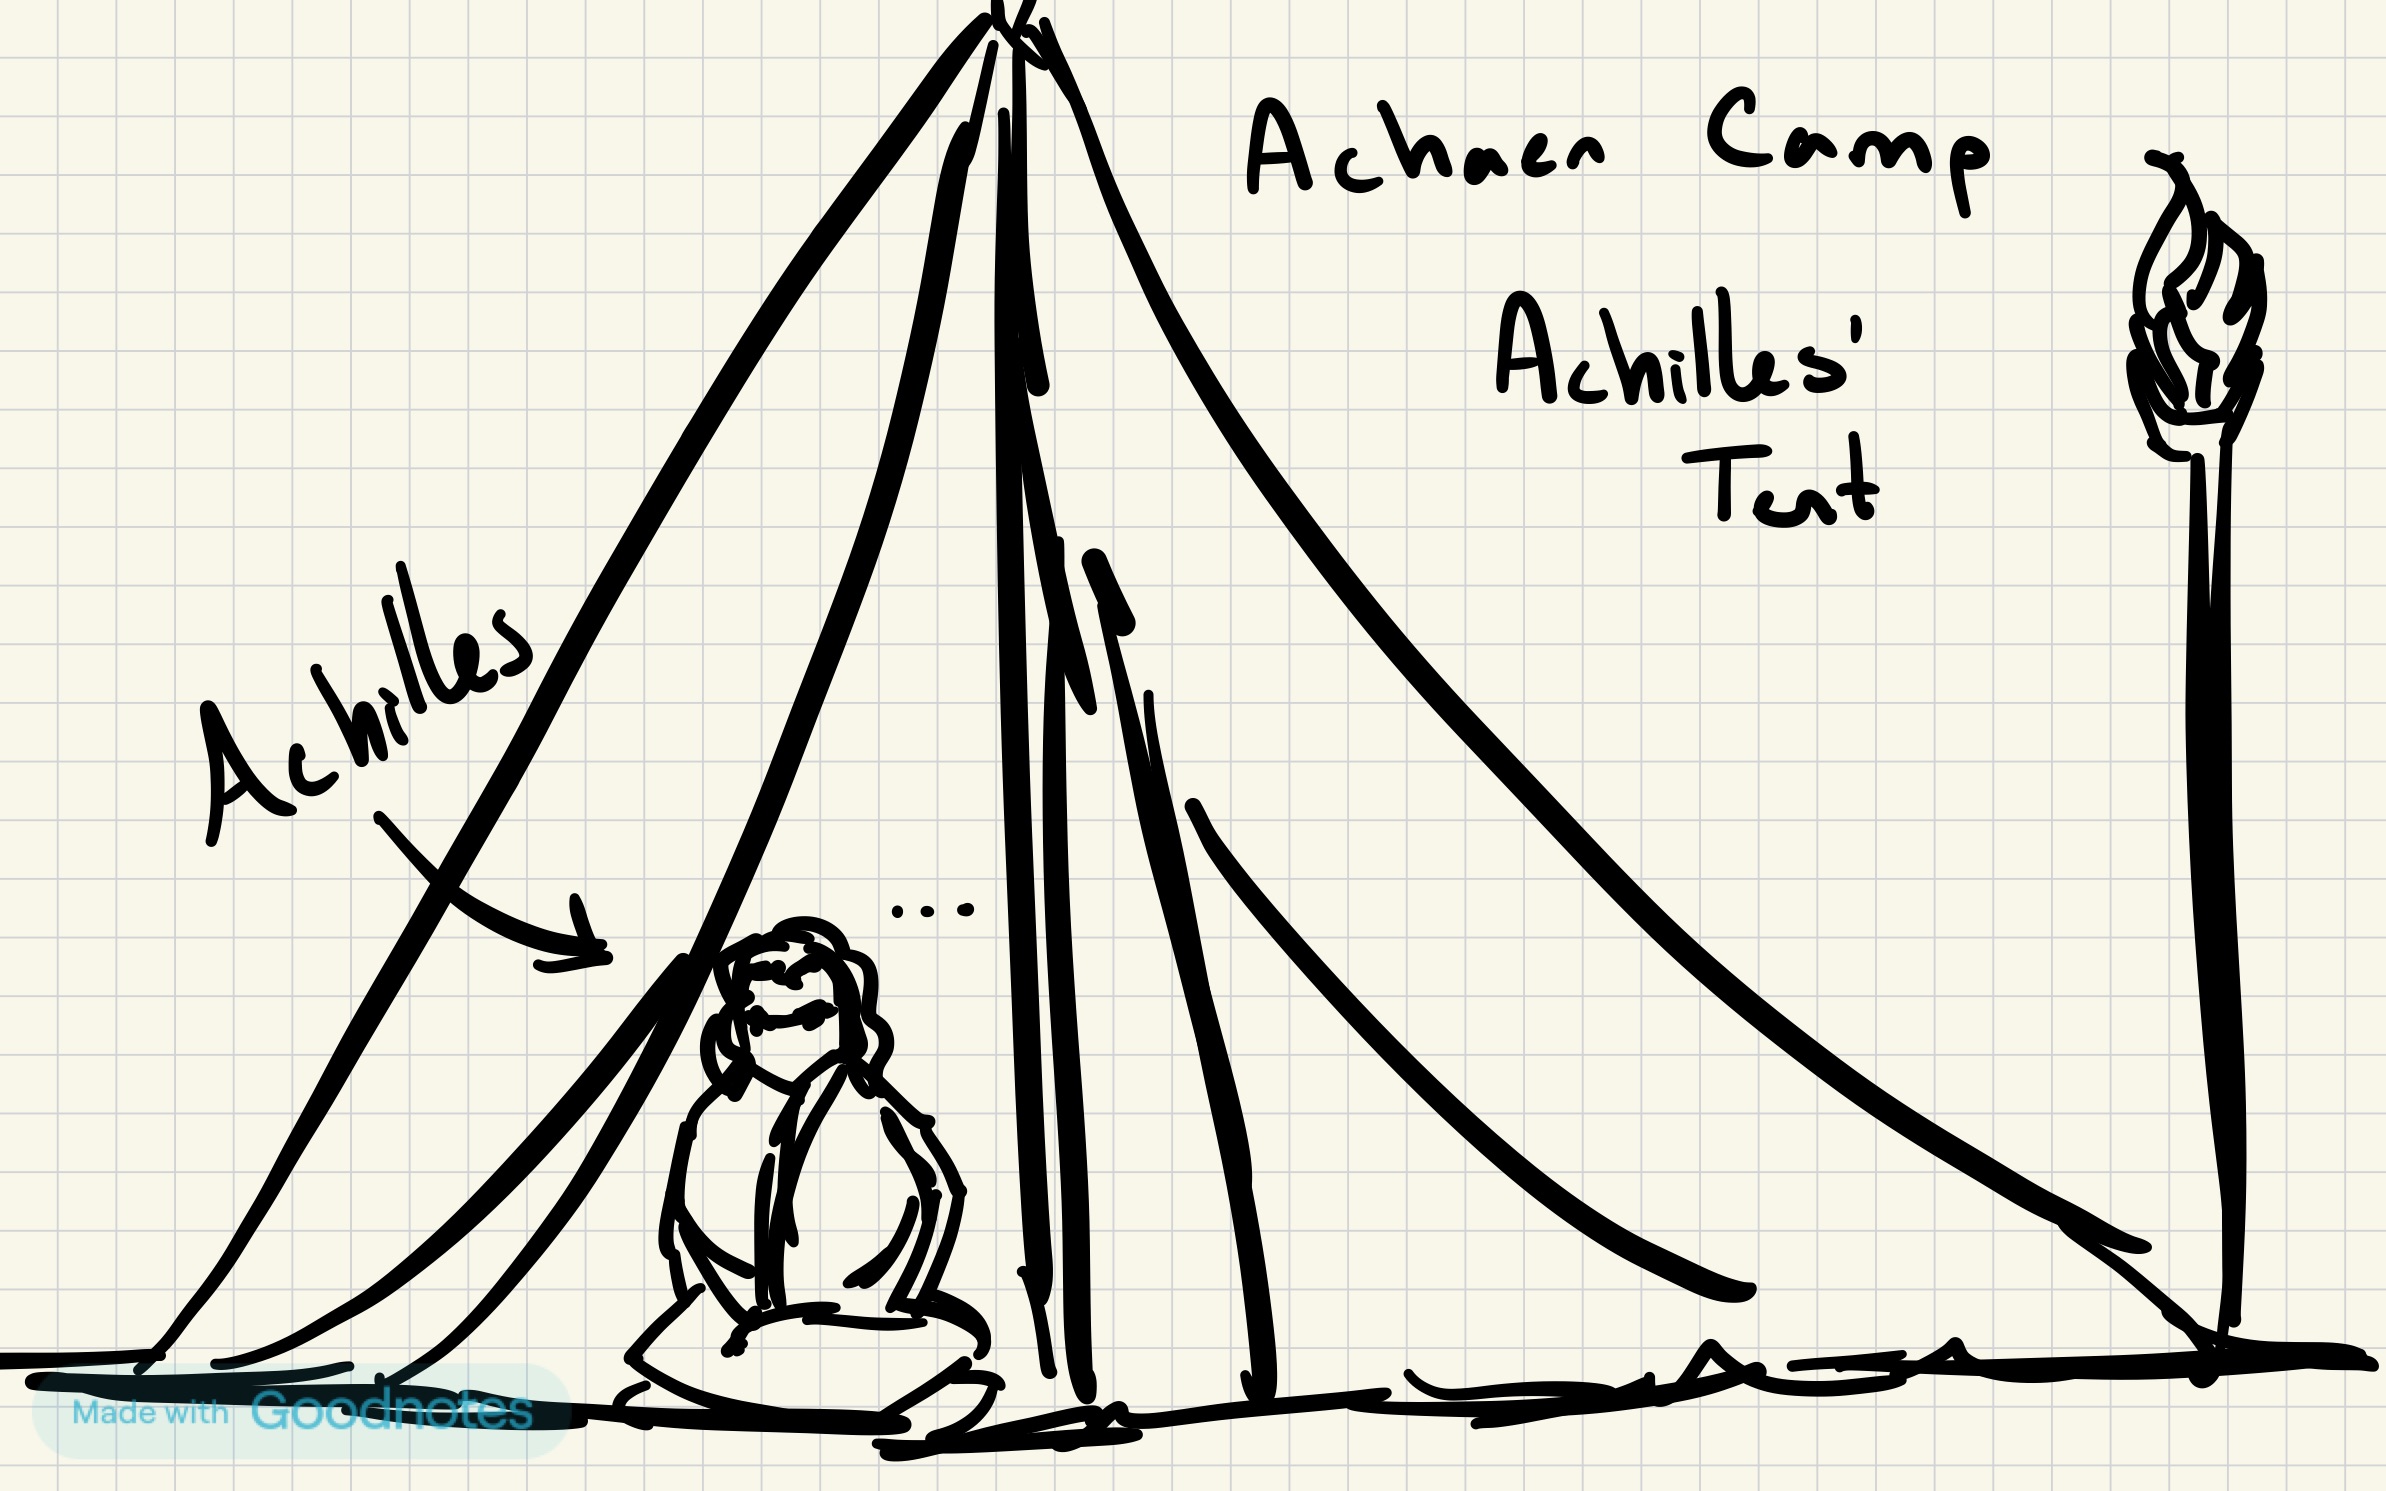 Achaean Camp
Achilles'
Tent
Achilles
....
Made with Goodnotes